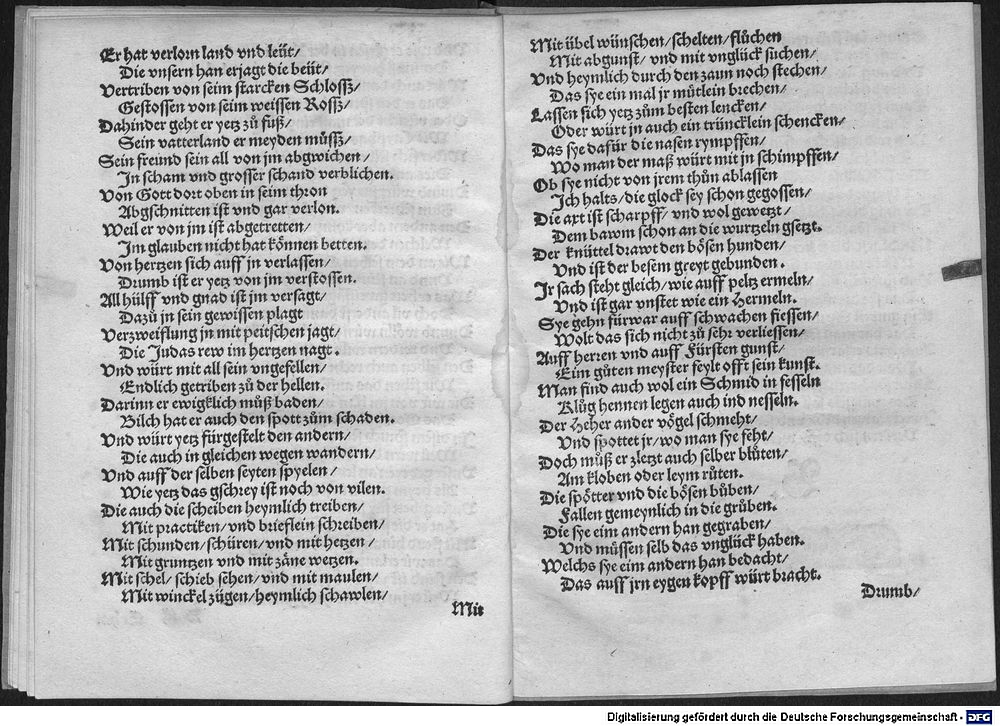 Er hat verlorn land vnd leüt/
Die vnsern han erjagt die beüt/
Vertriben von seim starcken Schlossz/
Gestossen von seim weissen Rossz/
Dahinder geht er yetz zů fůß/
Sein vatterland er meyden můssz/
Sein freund sein all von jm abgwichen/
In scham vnd grosser schand verblichen.
Von Gott dort oben in seim thron
Abgschnitten ist vnd gar verlon.
Weil er von jm ist abgetretten/
Im glauben nicht hat können betten.
Von hertzen sich auff jn verlassen/
Drumb ist er yetz von jm verstossen.
All hülff vnd gnad ist jm versagt/
Dazů jn sein gewissen plagt
Verzweiflung jn mit peitschen jagt/
Die Judas rew im hertzen nagt.
Vnd würt mit all sein vngefellen/
Endlich getriben zů der hellen.
Darinn er ewigklich můß baden/
Bilch hat er auch den spott zům schaden.
Vnd würt yetz fürgestelt den andern/
Die auch in gleichen wegen wandern/
Vnd auff der selben seyten spyelen/
Wie yetz das gschrey ist noch von vilen.
Die auch die scheiben heymlich treiben/
Mit practiken/ vnd brieflein schreiben/
Mit schunden/ schüren/ vnd mit hetzen/
Mit gruntzen vnd mit zäne wetzen.
Mit schel/ schieb sehen/ vnd mit maulen/
Mit winckel zügen/ heymlich schawlen/
Mit
Mit übel wünschen/ schelten/ flůchen
Mit abgunst/ vnd mit vnglück sůchen/
Vnd heymlich durch den zaun noch stechen/
Das sye ein mal jr můtlein brechen/
Lassen sich yetz zům besten lencken/
Oder würt jn auch ein trüncklein schencken/
Das sye dafür die nasen rympffen/
Wo man der maß würt mit jn schimpffen/
Ob sye nicht von jrem thůn ablassen
Ich halts/ die glock sey schon gegossen/
Die art ist scharpff/ vnd wol gewetzt/
Dem bawm schon an die wurtzeln gsetzt.
Der knüttel drawt den bösen hunden/
Vnd ist der besem greyt gebunden.
Ir sach steht gleich/ wie auff peltz ermeln/
Vnd ist gar vnstet wie ein Hermeln.
Sye gehn fürwar auff schwachen fiessen/
Wolt das sich nicht zů sehr verliessen/
Auff herren vnd auff Fürsten gunst/
Eim gůten meyster feylt offt sein kunst.
Man find auch wol ein Schmid in fesseln
Klůg hennen legen auch ind nesseln.
Der Heher ander vögel schmeht/
Vnd spottet jr/ wo man sye seht/
Doch můß er zletzt auch selber blůten/
Am kloben oder leym růten.
Die spötter vnd die bösen bůben/
Fallen gemeynlich in die grůben.
Die sye eim andern han gegraben/
Vnd müssen selb das vnglück haben.
Welchs sye eim andern han bedacht/
Das auff jrn eygen kopff würt bracht.
Drumb/
Digitalisierung gefördert durch die Deutsche Forschungsgemeinschaft - DFG